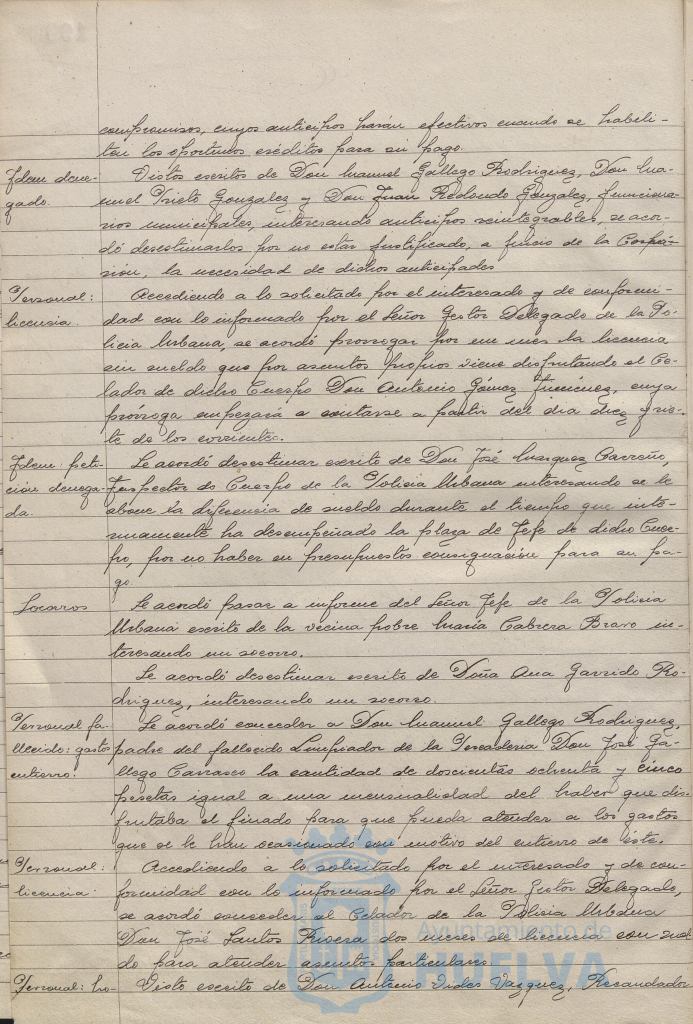 compromisos, cuyos anticipos harán efectivos cuando se habili-
ten los oportunos créditos para su pago.
Idem dene-
gado.
Vistos escritos de Don Manuel Gallego Rodriguez, Don Ma-
nuel Prieto Gonzalez y Don Juan Redondo Gonzalez, funciona-
rios municipales, interesando anticipos reintegrables, se acor-
dó desestimarlos por no estar justificado, a juicio de la Corpo-
ración, la necesidad de dichos anticipados
Personal:
licencia.
Accediendo a lo solicitado por el interesado y de conformi-
dad con lo informado por el Señor Gestor Delegado de la Po-
licia Urbana, se acordó prorrogar por un mes la licencia
sin sueldo que por asuntos propios viene disfrutando el Ce-
lador de dicho Cuerpo Don Antonio Gómez Jiménez, cuya
prórroga empezará a contarse a partir del dia diez y sie-
te de los corrientes.
Idem: peti-
ción denega-
da.
Se acordó desestimar escrito de Don José Marquez Carreño,
Inspector do Cuerpo de la Policia Urbana interesando se le
abone la diferencia de sueldo durante el tiempo que inte-
rinamente ha desempeñado la plaza de Jefe de dicho Cuer-
po, por no haber en presupuestos consignación para su pa-
go.
Socorros
Se acordó pasar a informe del Señor Jefe de la Policia
Urbana escrito de la vecina pobre María Cabrera Bravo in-
teresando un socorro.
Se acordó desestimar escrito de Doña Ana Garrido Ro-
driguez, interesando un socorro.
Personal fa-
llecido: gastos
entierro.
Se acordó conceder a Don Manuel Gallego Rodriguez,
padre del fallecido Limpiador de la Pescaderia Don José Ga-
llego Carrasco la cantidad de doscientas ochenta y cinco
pesetas igual a una mensualidad del haber que dis-
frutaba el finado para que pueda atender a los gastos
que se le han ocasionado con motivo del entierro de éste.
Personal:
licencia:
Accediendo a lo solicitado por el interesado y de con-
formidad con lo informado por el Señor Gestor Delegado,
se acordó conceder al Celador de la Policia Urbana
Don José Santos Rivera dos meses de licencia con suel-
do para atender asuntos particulares.
Personal: ho-
Visto escrito de Don Antonio Vides Vazquez, Recaudador
Ayuntamiento de
HUELVA